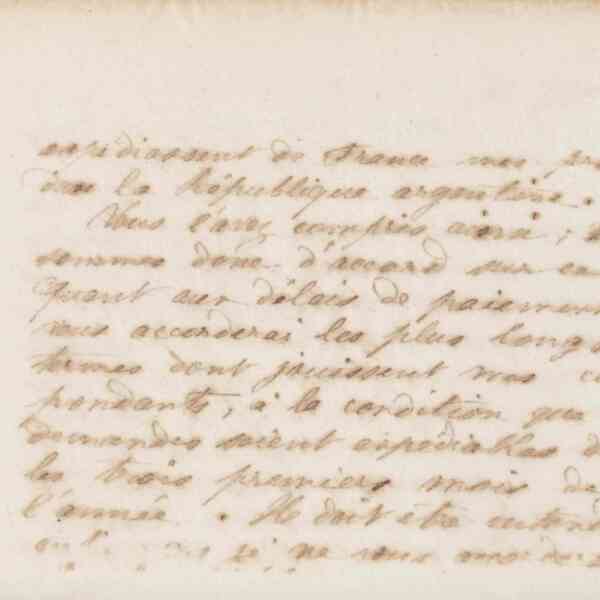 expédiassent de France mes pr
dans la République argentine.
Vous l'avez compris ainsi ;
sommes donc d'accord sur ce
Quant aux délais de paiemen
vous accorderai les plus longs
termes dont jouissent mes co
pondants, à la condition que
demandes soient expédiables d
les trois premiers mois de
l'année. Il doit être entend
je ne vous